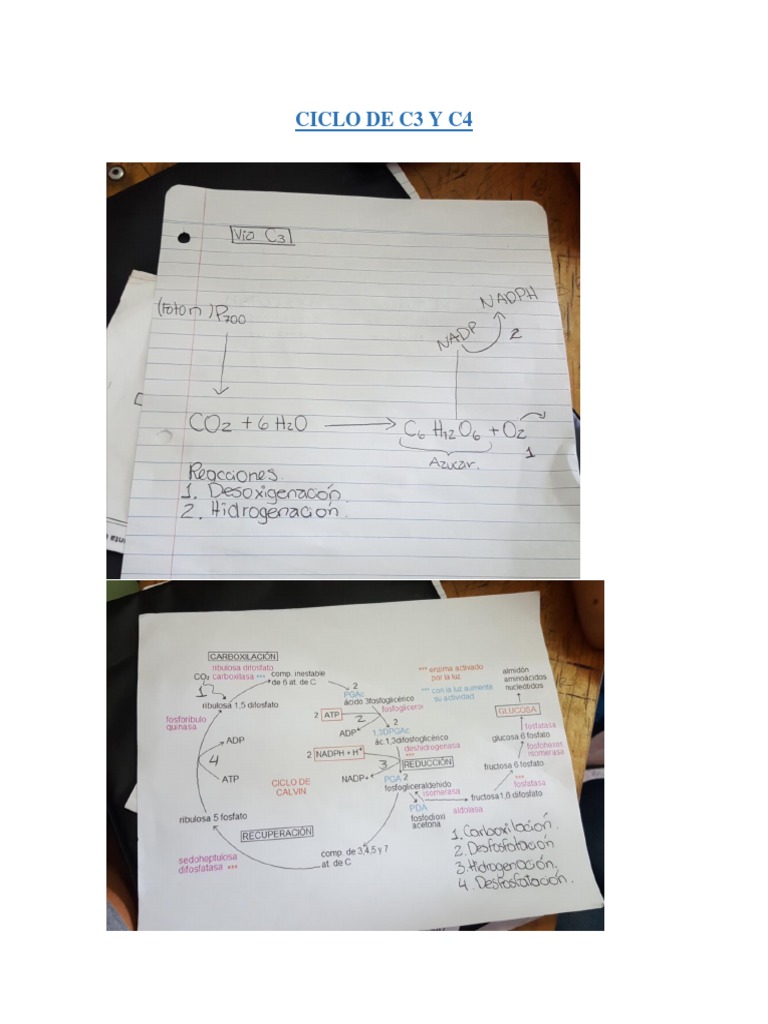 CICLO DE C3 Y C4
Via C3
(Foton) P700
NADPH
NADP
2
CO2 + 6 H2O → C6 H12 O6 + O2
1
Azucar.
Reacciones.
1. Desoxigenación.
2. Hidrogenación.
CARBOXILACIÓN
ribulosa difosfato
CO2 carboxilasa ***
1
comp. inestable
de 6 at. de C
ribulosa 1,5 difosfato
2
PGAc
ácido 3fosfoglicérico
*** enzima activado
por la luz
*** con la luz aumenta
su actividad
almidón
aminoácidos
nucleótidos
GLUCOSA
fosforibulo
quinasa
ADP
4
ATP
2 ATP
2
ADP
2
1,3DPGAc
ác.1,3difosfoglicérico
deshidrogenasa
***
2 NADPH + H+
3
REDUCCIÓN
NADP+
PGA 2
fosfogliceraldehido
isomerasa
PDA
fosfodioxi
acetona
aldolasa
fructosa1,6 difosfato
***
fosfatasa
fructosa 6 fosfato
fosfohexos
isomerasa
glucosa 6 fosfato
fosfatasa
CICLO DE
CALVIN
ribulosa 5 fosfato
RECUPERACIÓN
sedoheptulosa
difosfatasa ***
comp. de 3,4,5 y 7
at. de C
1. Carboxilación.
2. Desfosfatación
3. Hidrogenación.
4. Desfosfatación.